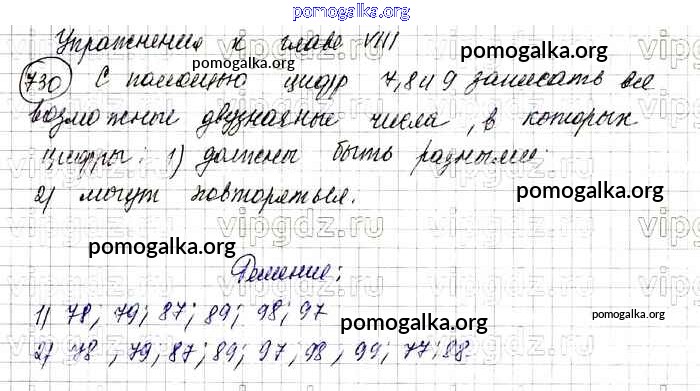 pomogalka.org
Упражнения к главе VIII
730 С помощью цифр 7, 8 и 9 записать все
возможные двузначные числа, в которых
цифры: 1) должны быть разными;
2) могут повторяться.
Решение:
1) 78; 79; 87; 89; 98; 97
2) 78, 79; 87; 89; 97; 98, 99; 77; 88.
pomogalka.org
pomogalka.org
pomogalka.org
pomogalka.org
pomogalka.org
pomogalka.org
vipgdz.ru
vipgdz.ru
vipgdz.ru